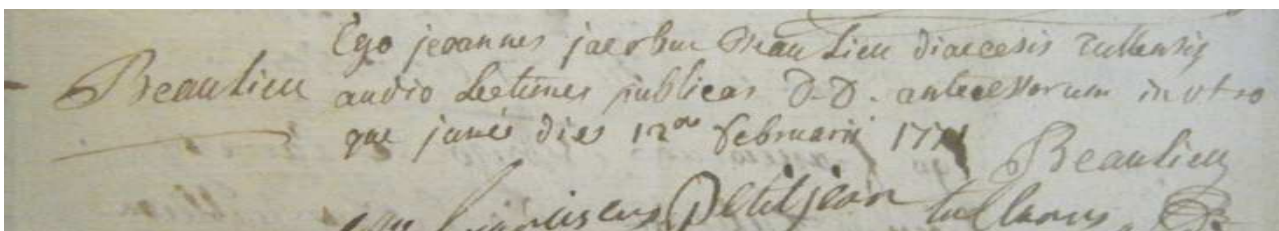 Beaulieu
Ego joannes jacobus Beaulieu diaecesis tullensis
audio Lectiones publicas D.D. antecessorum in utro
que jure die 12a februarii
Beaulieu
franciscus Petitjean tullensis